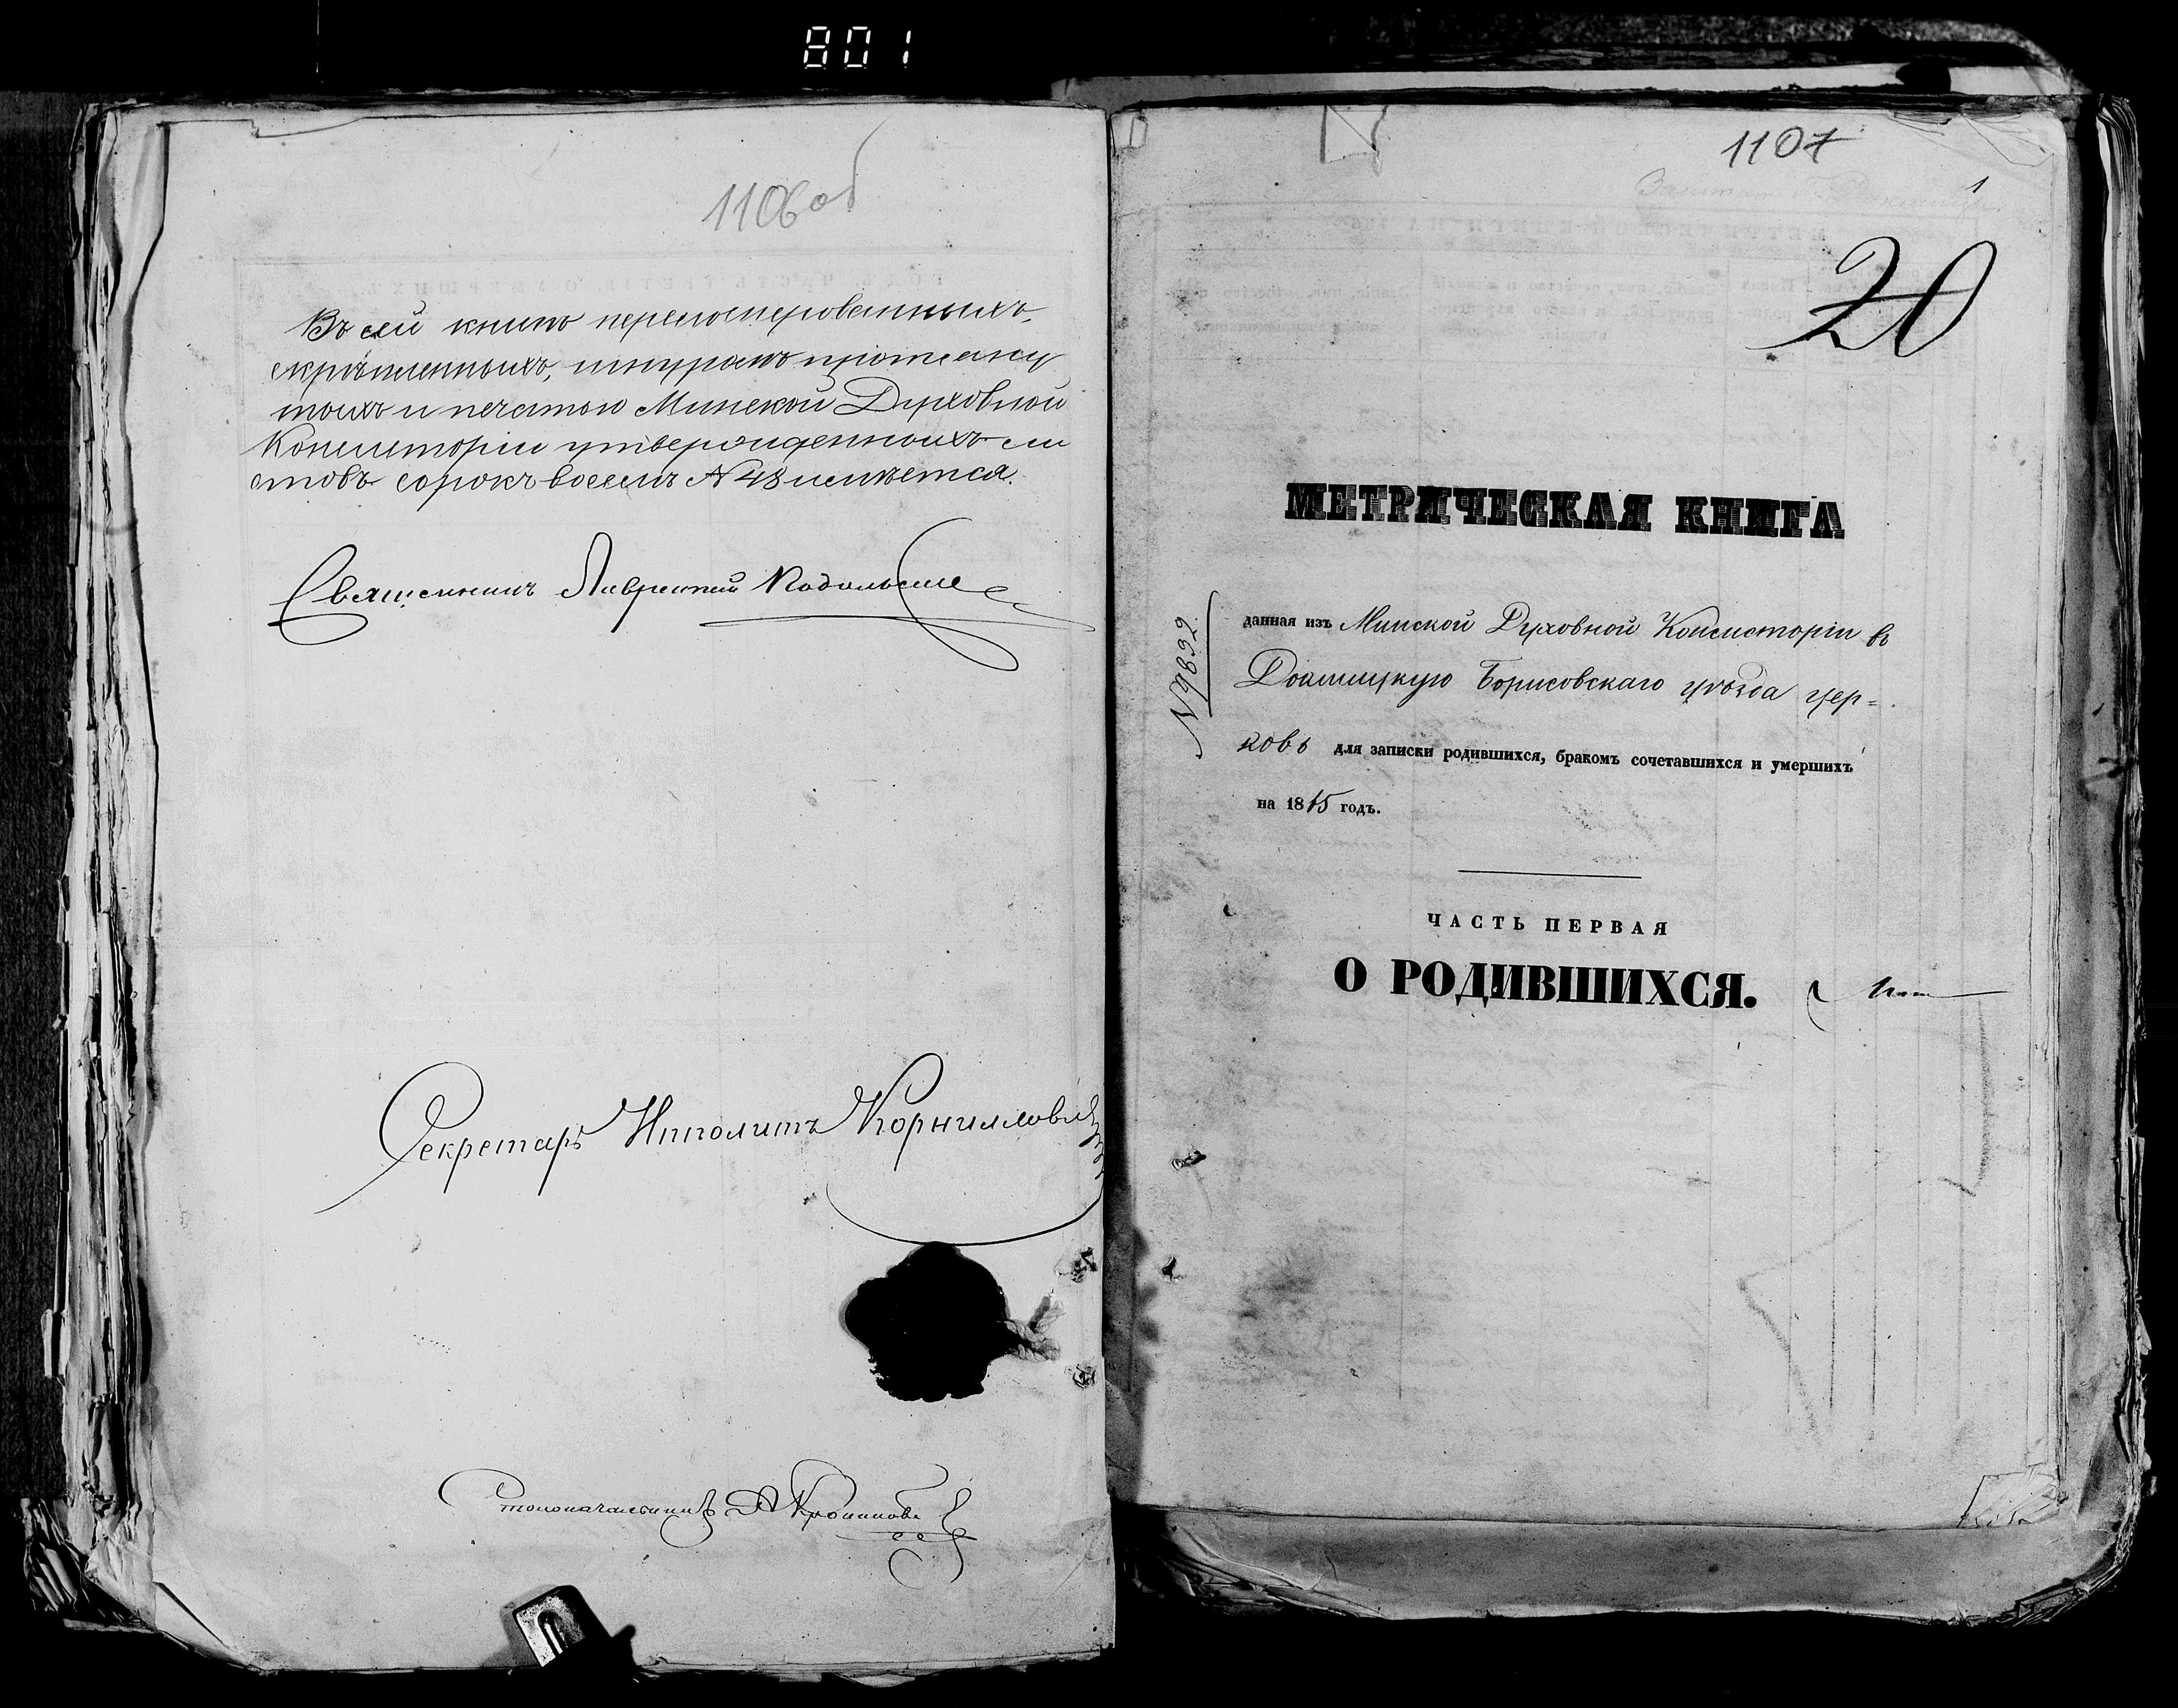 801
1106 об
Въ сей книгѣ перенумерованныхъ,
скрѣпленныхъ, шнуромъ протяну
тыхъ и печатью Минской Духовной
Консисторіи утвержденныхъ ли
стовъ сорокъ восемь № 48 имѣется.
Священникъ Лаврентій
Секретарь Ипполитъ Корниловичъ
Столоначальникъ
1107
1
20
МЕТРИЧЕСКАЯ КНИГА
№ 9832
данная изъ Минской Духовной Консисторіи въ
Докшицкую Борисовскаго уѣзда цер=
ковь для записки родившихся, бракомъ сочетавшихся и умершихъ
на 18 годъ.
ЧАСТЬ ПЕРВАЯ
О РОДИВШИХСЯ.